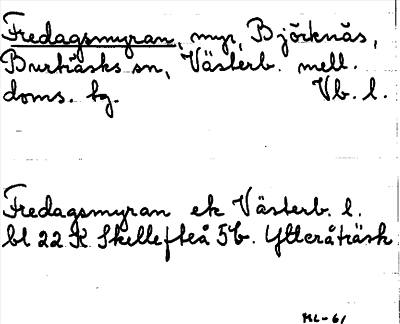 Fredagsmyran, myr, Björknäs,
Burträsks sn, Västerb. mell.
doms. tg. Vb. l.
Fredagsmyran ek Västerb. l.
bl 22 K Skellefteå 5b. Ytteråträsk
ML-61